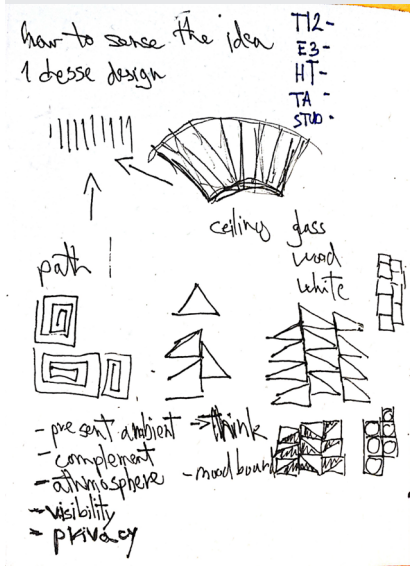 how to sense the idea
1 desse design
T12-
E3-
HT-
TA -
STUD -
ceiling glass
wood
white
path
- present ambient -> think
- complement
- athmosphere - moodboard
- visibility
- privacy